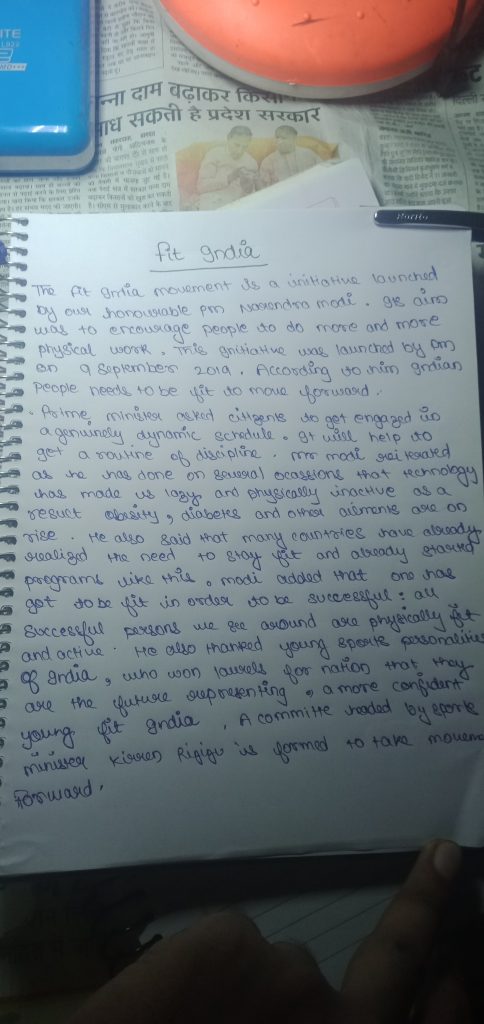 ITE
न्ना दाम बढ़ाकर किसा
ाध सकती है प्रदेश सरकार
Fit India
The Fit India movement is a initiative launched
by our honourable PM Narendra Modi. Its aim
was to encourage people to do more and more
physical work. This initiative was launched by PM
on 9 September 2019. According to him Indian
People needs to be fit to move forward.
Prime minister asked citizens to get engaged in
a genuinely dynamic schedule. It will help to
get a routine of discipline. Mr modi reiterated
as he has done on several ocassions that technology
has made us lazy and physically inactive as a
result obesity, diabetes and other ailments are on
rise. He also said that many countries have already
realized the need to stay fit and already started
programs like this. Modi added that one has
got to be fit in order to be successful: all
successful persons we see around are physically fit
and active. He also thanked young sports personalities
of India, who won laurels for nation that they
are the future representing, a more confident
young fit India. A committe headed by sports
minister Kirren Rijiju is formed to take moveme
forward.